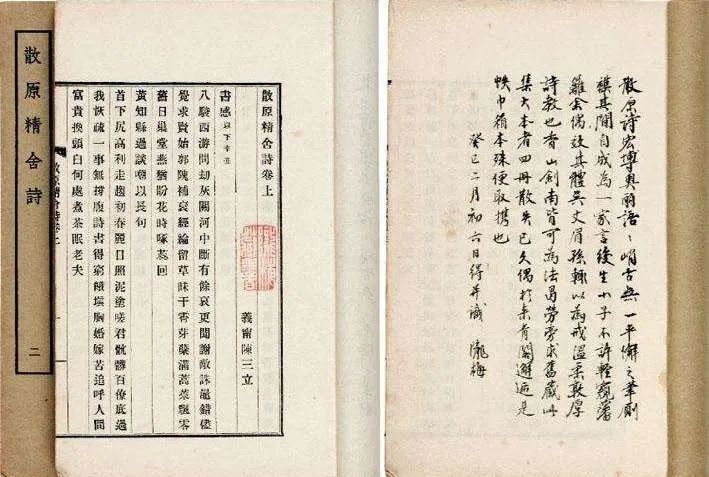 散原精舍詩
二
散原精舍詩卷上
義甯陳三立
書感 以下辛丑
八駿西游問劫灰關河中斷有餘哀更聞謝敵誅鼂錯儘
覺求賢始郭隗補袞經綸留草昧干霄芽蘗滿蒿萊飄零
舊日巢堂燕猶盼花時啄蕊回
黃知縣過談嘲以長句
首下尻高利走趨初春麗日照泥塗嗟君骯髒百僚底過
我恢疏一事無撐腹詩書得窮餓塡胸婚嫁苦追呼人間
富貴換頭白何處煮茶眠老夫
散原精舍詩卷上
散原詩宏博奧麗語〻峭古無一平懈之筆
其間自成為一家言後生小子不許輕窺藩
籬余偶效其體吳丈眉孫輒以為戒溫柔敦厚
詩教也香山劍南皆可為法曷勞旁求舊藏此
集大本者四冊散失已久偶於來青閣邂逅是
帙巾箱本殊便取攜也
癸巳二月初六日得并識